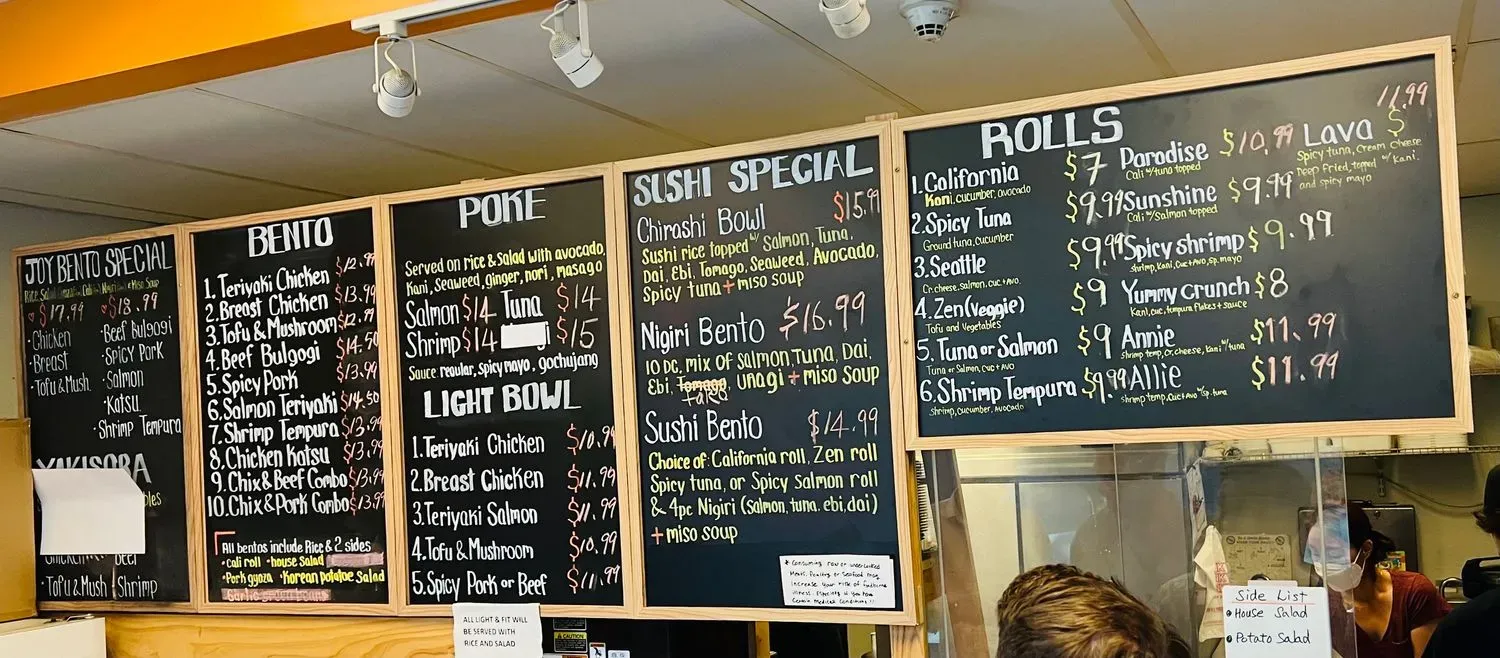 JOY BENTO SPECIAL
$17.99 $18.99
Chicken
Breast
Tofu & Mush.
Beef Bulgogi
Spicy Pork
Salmon
Katsu
Shrimp Tempura
YAKISORA
Chicken Beef
Tofu & Mush Shrimp
BENTO
1. Teriyaki Chicken $12.99
2. Breast Chicken $13.99
3. Tofu & Mushroom $12.99
4. Beef Bulgogi $14.50
5. Spicy Pork $13.99
6. Salmon Teriyaki $14.50
7. Shrimp Tempura $13.99
8. Chicken Katsu $13.99
9. Chix & Beef Combo $13.99
10. Chix & Pork Combo $13.99
All bentos include Rice & 2 sides
• cali roll • house Salad
• Pork gyoza • Korean potatoe Salad
POKE
Served on rice & salad with avocado,
Kani, Seaweed, ginger, nori, masago
Salmon $14 Tuna $14
Shrimp $14 $15
Sauce reaular, spicy mayo, gochujang
LIGHT BOWL
1. Teriyaki Chicken $10.99
2. Breast Chicken $11.99
3. Teriyaki Salmon $11.99
4. Tofu & Mushroom $10.99
5. Spicy Pork or Beef $11.99
ALL LIGHT & FIT WILL
BE SERVED WITH
RICE AND SALAD
SUSHI SPECIAL
Chirashi Bowl $15.99
Sushi rice topped w/ Salmon, Tuna,
Dai, Ebi, Tomago, Seaweed, Avocado,
Spicy tuna + miso soup
Nigiri Bento $16.99
10 pc. mix of salmon, Tuna, Dai,
Ebi, Tomago, unagi + miso soup
Sushi Bento $14.99
Choice of: California roll, Zen roll
Spicy tuna, or Spicy Salmon roll
& 4pc Nigiri (salmon, tuna, ebi, dai)
+ miso soup
* Consuming raw or undercooked
Meats, Poultry or Seafood may
Increase your risk of foodborne
illness. Especially if you have
Certain Medical Conditions!!
ROLLS
1. California $7
Kani, cucumber, avocado
2. Spicy Tuna $9.99
Ground tuna, cucumber
3. Seattle $9.99
Cr. cheese, salmon, cuc + avo
4. Zen (veggie) $9
Tofu and Vegetables
5. Tuna or Salmon $9
Tuna or Salmon, cuc + AVO
6. Shrimp Tempura $9.99
Shrimp, cucumber, Avocado
Paradise $10.99
Cali w/ tuna topped
Sunshine $9.99
Cali w/ salmon topped
Spicy shrimp $9.99
shrimp, Kani, Cuc + AVO, sp. mayo
Yummy Crunch $8
Kani, cuc, tempura flakes + sauce
Annie $11.99
shrimp temp, Cr. cheese, Kani w/ tuna
Allie $11.99
shrimp temp, cuc + Avo w/ sp. tuna
Lava $11.99
Spicy tuna, cream cheese
Deep Fried, topped w/ Kani.
and spicy mayo
CAUTION
Side List
• House Salad
• Potato Salad